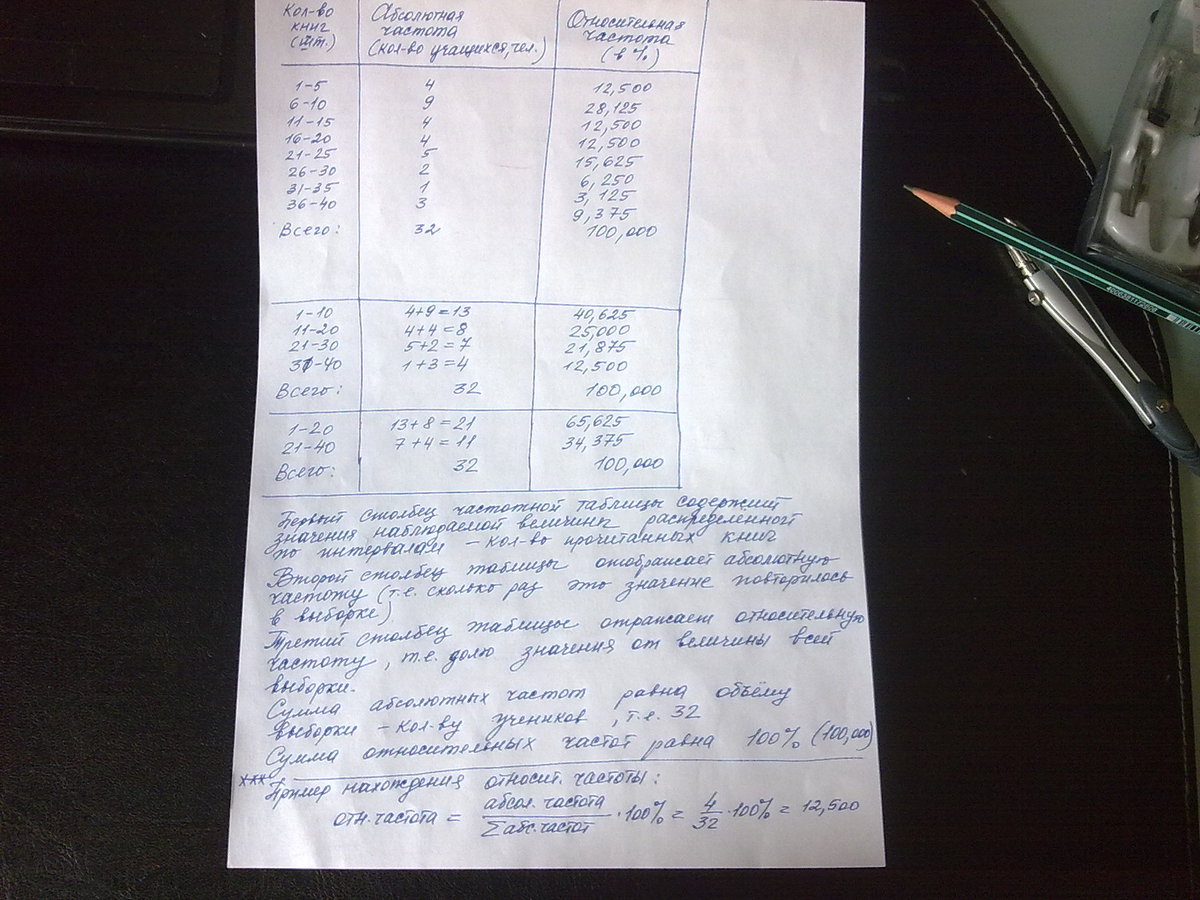 Кол-во книг (шт.) Абсолютная частота (кол-во учащихся, чел.) Относительная частота (в %)
1-5 4 12,500
6-10 9 28,125
11-15 4 12,500
16-20 4 12,500
21-25 5 15,625
26-30 2 6,250
31-35 1 3,125
36-40 3 9,375
Всего: 32 100,000
1-10 4+9=13 40,625
11-20 4+4=8 25,000
21-30 5+2=7 21,875
31-40 1+3=4 12,500
Всего: 32 100,000
1-20 13+8=21 65,625
21-40 7+4=11 34,375
Всего: 32 100,000
Первый столбец частотной таблицы содержит
значения наблюдаемой величины распределенной
по интервалам - кол-во прочитанных книг
Второй столбец таблицы отображает абсолютную
частоту (т.е. сколько раз это значение повторилось
в выборке)
Третий столбец таблицы отражает относительную
частоту, т.е. долю значения от величины всей
выборки.
Сумма абсолютных частот равна объёму
выборки - кол-ву учеников, т.е. 32
Сумма относительных частот равна 100% (100,000)
*** Пример нахождения относит. частоты:
отн. частота = абсол. частота / Σ абс. частот · 100% = 4/32 · 100% = 12,500